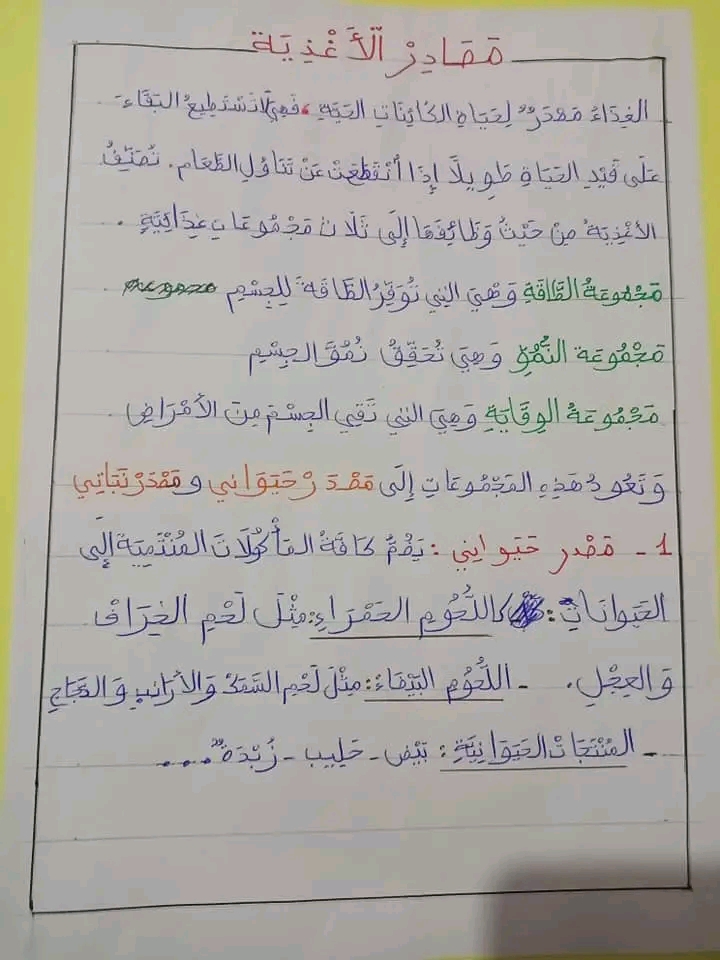 مَصَادِرْ الْأَغْذِيَة
الغِذَاءُ مَصْدَرٌ لِحَيَاةِ الكَائِنَاتِ الحَيَّةِ، فَهِيَ لَا تَسْتَطِيعُ البَقَاءَ
عَلَى قَيْدِ الحَيَاةِ طَوِيلًا إِذَا انْقَطَعَتْ عَنْ تَنَاوُلِ الطَّعَامِ. نُصَنِّفُ
الأَغْذِيَةُ مِنْ حَيْثُ وَظَائِفَهَا إِلَى ثَلَاث مَجْمُوعَاتٍ غِذَائِيَّةٍ.
مَجْمُوعَةُ الطَّاقَةِ وَهِيَ التِي تُوَفِّرُ الطَّاقَةَ لِلْجِسْمِ
مَجْمُوعَة النُّمُوِّ وَهِيَ تُحَقِّقُ نُمُوَّ الجِسْمِ
مَجْمُوعَةُ الوِقَايَةِ وَهِيَ التِي تَقِي الجِسْمَ مِنَ الأَمْرَاضِ
وَتَعُودُ هَذِهِ المَجْمُوعَاتِ إِلَى مَصْدَرْ حَيَوَانِي وَمَصْدَرْ نَبَاتِي
1 - مَصْدر حَيَوانِي: يَضُمُّ كَافَةُ المَأْكُولَاتِ المُنْتَمِيَة إِلَى
الحَيَوانَاتِ: اللُّحُومِ الحَمْرَاءِ: مِثْلَ لَحْمِ الخِرَافْ
وَالعِجْلِ. - اللُّحُومُ البَيْضَاءُ: مِثْلَ لَحْمِ السَّمَكِ وَالأَرَانِبِ وَالدَّجَاجِ
- المُنْتَجَاتْ الحَيَوَانِيَّةِ: بَيْض - حَلِيب - زُبْدَةٌ....